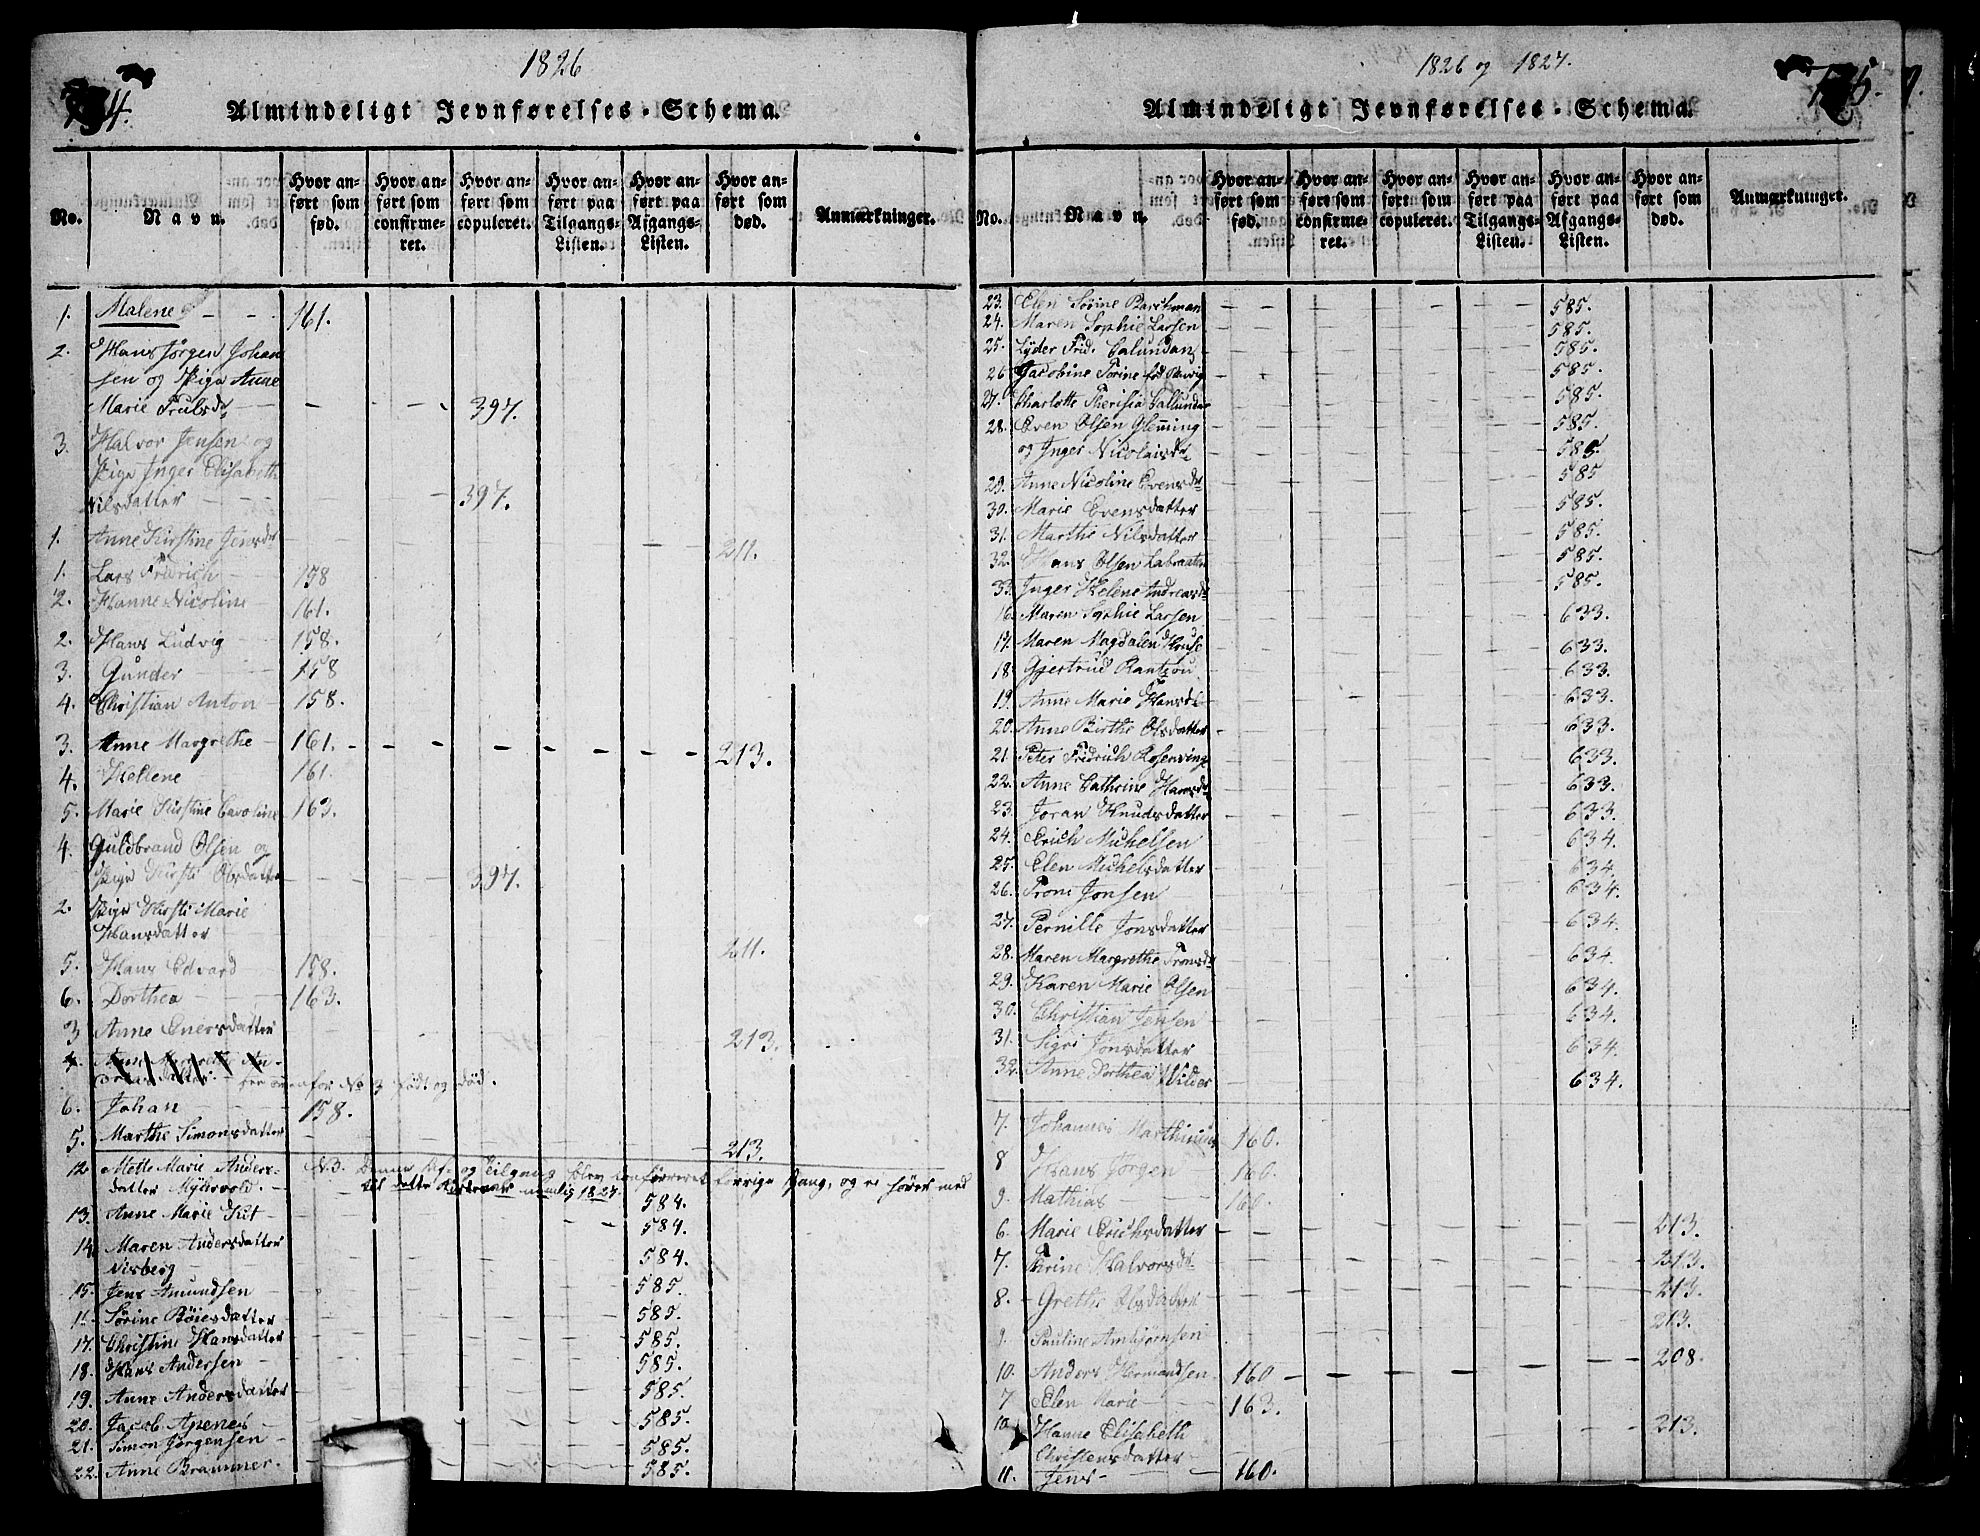 1826
134.
Almindeligt Jevnførelses-Schema.
No.
Navn.
Hvor an-
ført som
fød.
Hvor an-
ført som
confirme-
ret.
Hvor an-
ført som
copuleret.
Hvor an-
ført paa
Tilgangs-
Listen.
Hvor an-
ført paa
Afgangs-
Listen.
Hvor an-
ført som
død.
Anmærkninger.
1. Malene - - 161.
2. Hans Jørgen Johan
sen og Pige Anne
Marie Trulsdr - - - - 397.
3. Halvor Jensen og
Pige Inger Elisabeth
Nilsdatter - - - 397.
1. Anne Kirstine Jensdr - - 211.
1. Lars Fridrich - 158
2. Hanne Nicoline - 161.
2. Hans Ludvig - 158.
3. Gunder - 158
4. Christian Anton - 158.
3. Anne Margrethe - 161. - - - - - - - 213.
4. Hellene - 161.
5. Marie Kirstine Caroline 163.
4. Guldbrand Olsen og
Pige Kirsti Olsdatter - - - 397.
2. Pige Kirsti Marie
Hansdatter - - 211.
5. Hans Edvard - 158.
6. Dorthea - - 163.
3 Anne Enersdatter - - 213.
4. Anne
ovenfor No 3 født og død.
6. Johan - - 158.
5. Marthe Simonsdatter - - 213.
12. Mette Marie Anders-
datter Myhrvold. - 584.
13. Anne Marie - - 584.
14. Maren Andersdatter
Nisberg - 584.
15. Jens Amundsen - 585.
16. Sørine Bøiesdatter 585.
17. Christine Hansdatter 585.
18. Hans Andersen - 585.
19. Anne Andersdatter 585.
20. Jacob Apenes - 585.
21. Simon Jørgensen - 585.
22. Anne Brammer. - 585.
1826 og 1827.
135.
Almindeligt Jevnførelses-Schema.
No.
Navn.
Hvor an-
ført som
fød.
Hvor an-
ført som
confirme-
ret.
Hvor an-
ført som
copuleret.
Hvor an-
ført paa
Tilgangs-
Listen.
Hvor an-
ført paa
Afgangs-
Listen.
Hvor an-
ført som
død.
Anmærkninger.
23. Elen Sørine Barchman - - 585.
24. Maren Sophie Larsen - - 585.
25. Lyder Frid. Calundan - - 585.
26 Jacobine Torine - - 585.
27. Charlotte Theresia Callundan - - 585.
28. Even Olsen Glemming - - 585.
og Inger Nicolaisdr - - 585.
29. Anne Nicoline Evensdr - - 585
30. Marie Evensdatter - - 585.
31. Marthe Nilsdatter - - 585.
32. Hans Olsen Labraaten - - 585.
33. Inger Helene Andreasdr - - 585.
16. Maren Sophie Larsen - - 633.
17. Maren Magdalen - - 633.
18. Gjertrud Rantzou - - 633.
19. Anne Marie Hansdr - - 633.
20. Anne Birthe Olsdatter - - 633.
21. Peter Fridrich Rosenvinge - - 633.
22. Anne Cathrine Hansdr - - 633.
23. Joran Knudsdatter - - 633.
24. Erich Michelsen - - 634.
25. Elen Michelsdatter - - 634.
26. Trond Jonsen - - 634.
27. Pernille Jonsdatter - - 634.
28. Maren Margrethe Tronsdr - - 634.
29. Karen Marie Olsen - - 634.
30. Christian Jensen - - 634.
31. Sigri Jonsdatter - - 634.
32. Anne Dorthea Wilder - - 634.
7. Johannes Marthinius 160.
8 Hans Jørgen - 160.
9. Mathias - 160.
6. Marie Erichsdatter - - 213.
7. Trine Halvorsdr - - 213.
8. Grethe Olsdatter - - 213.
9. Pauline Ambjørnsen - - 213.
10. Anders Hermandsen 160 - - - - - 208.
7 Elen Marie - 163.
10. Hanne Elisabeth
Christensdatter - - 213.
11. Jens - 160.